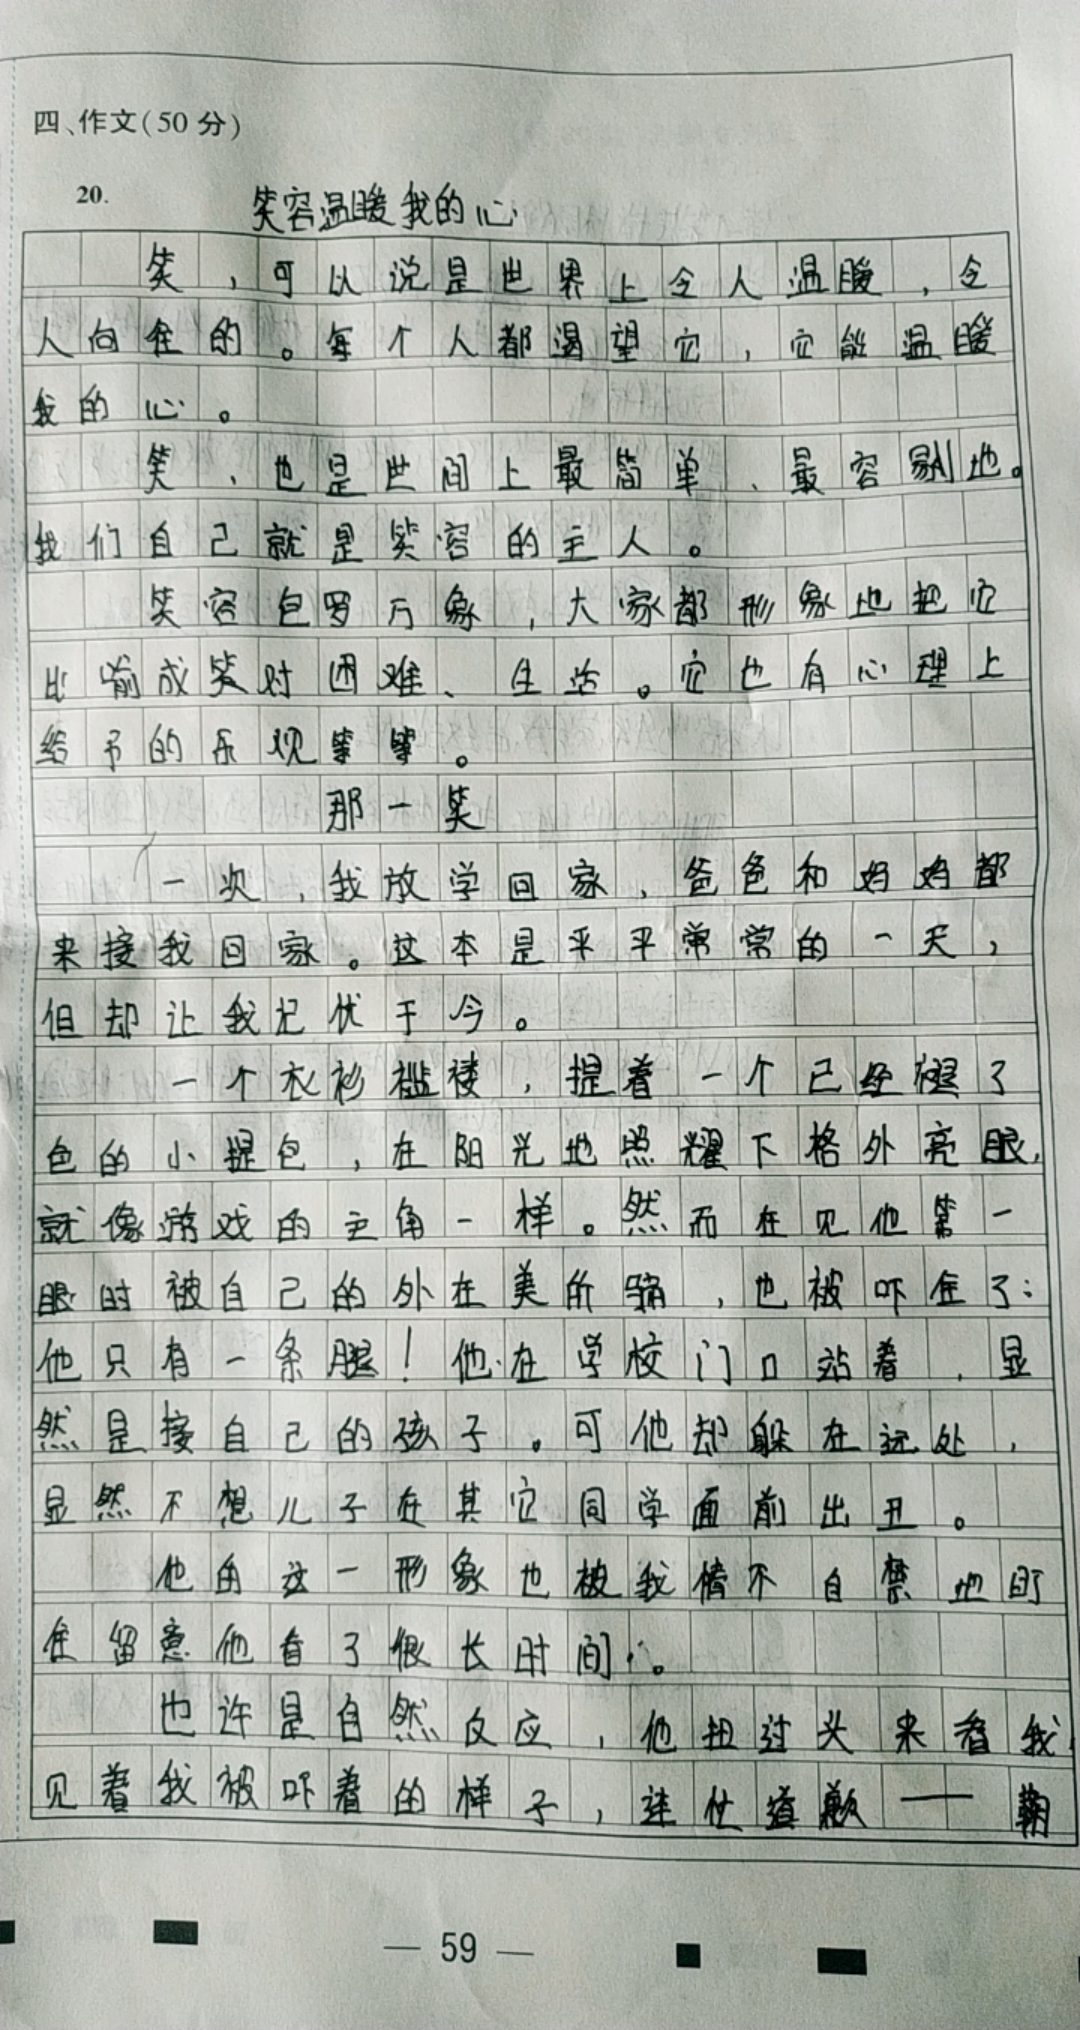 四、作文(50分)
20.
笑容温暖我的心
笑,可以说是世界上令人温暖,令
人向往的。每个人都渴望它,它能温暖
我的心。
笑,也是世间上最简单、最容易地。
我们自己就是笑容的主人。
笑容包罗万象,大家都形象地把它
比喻成笑对困难、生活。它也有心理上
给予的乐观等等。
那一笑
一次,我放学回家,爸爸和妈妈都
来接我回家。这本是平平常常的一天,
但却让我记忧于今。
一个衣衫褴褛,提着一个已经褪了
色的小提包,在阳光地照耀下格外亮眼,
就像游戏的主角一样。然而在见他第一
眼时被自己的外在美所骗,也被吓住了:
他只有一条腿!他在学校门口站着,显
然是接自己的孩子。可他却躲在远处,
显然不想儿子在其它同学面前出丑。
他的这一形象也被我情不自禁地盯
住留意他看了很长时间。
也许是自然反应,他扭过头来看我,
见着我被吓着的样子,连忙道歉——鞠
— 59 —